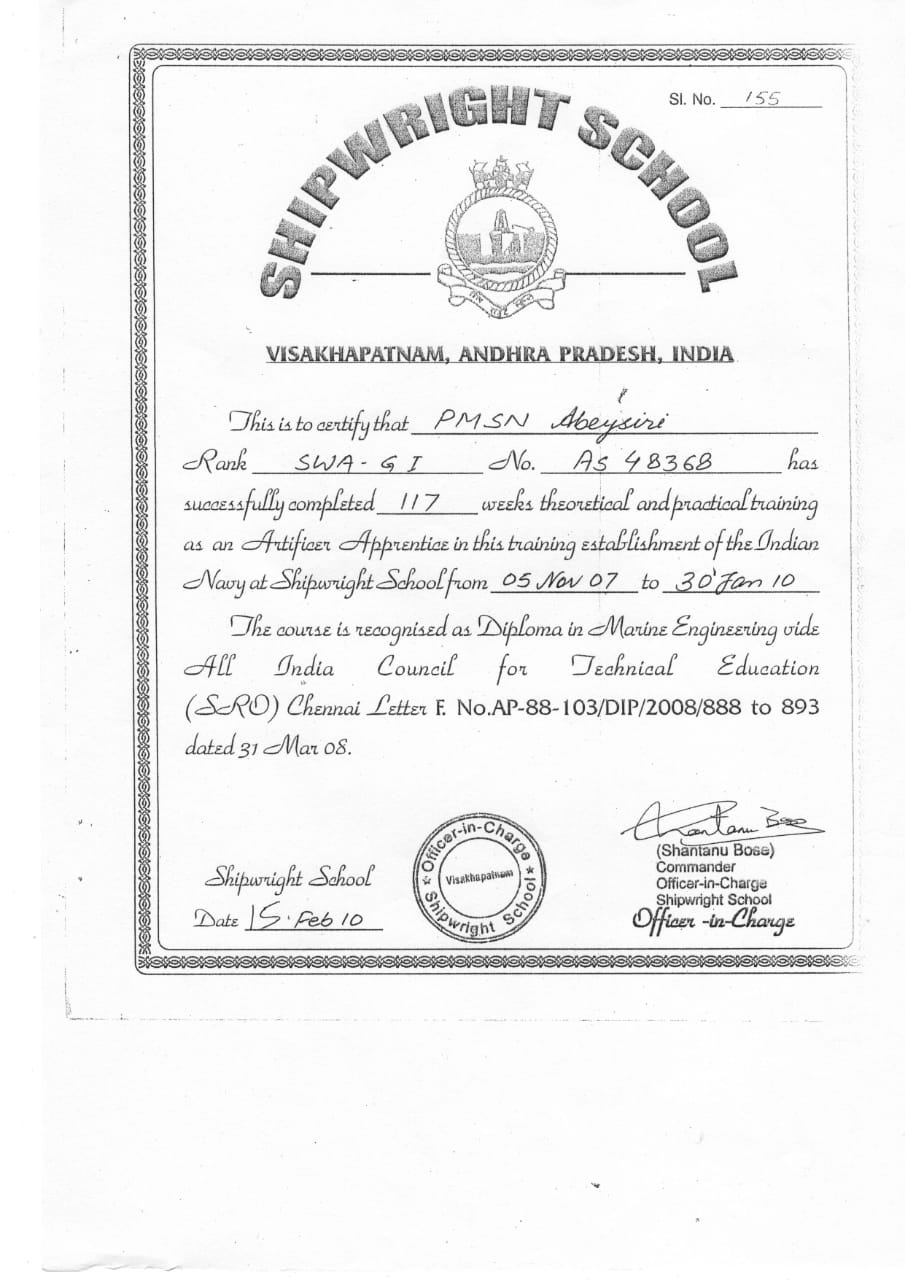 Sl. No. 155
SHIPWRIGHT SCHOOL
VISAKHAPATNAM, ANDHRA PRADESH, INDIA
This is to certify that PMSN Abeysiri
Rank SWA-G I No. AS 48368 has
successfully completed 117 weeks theoretical and practical training
as an Artificer Apprentice in this training establishment of the Indian
Navy at Shipwright School from 05 Nov 07 to 30 Jan 10
The course is recognised as Diploma in Marine Engineering vide
All India Council for Technical Education
(SRO) Chennai Letter F. No.AP-88-103/DIP/2008/888 to 893
dated 31 Mar 08.
Officer-in-Charge
Visakhapatnam
Shipwright School
Shantanu Bose
(Shantanu Bose)
Commander
Officer-in-Charge
Shipwright School
Officer -in-Charge
Shipwright School
Date 15. Feb 10